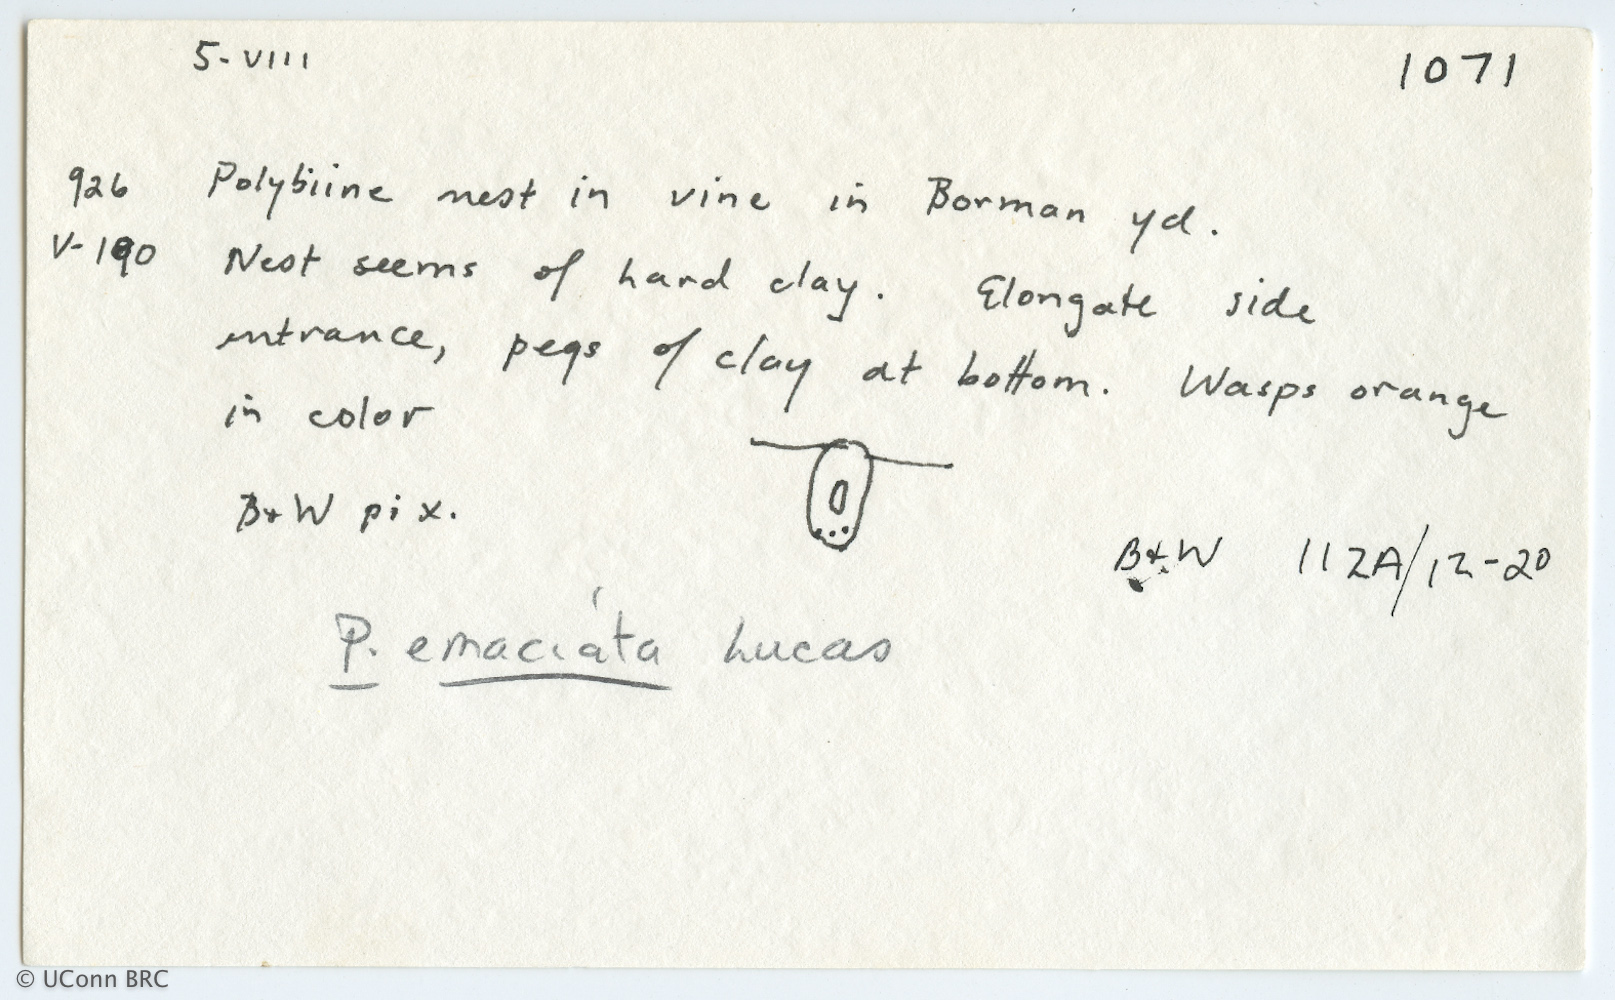 5-VIII
1071
926 Polybiine nest in vine in Borman yd.
V-190 Nest seems of hard clay. Elongate side
entrance, pegs of clay at bottom. Wasps orange
in color
B+W pix.
B+W 112A/12-20
P. emaciáta Lucas
© UConn BRC